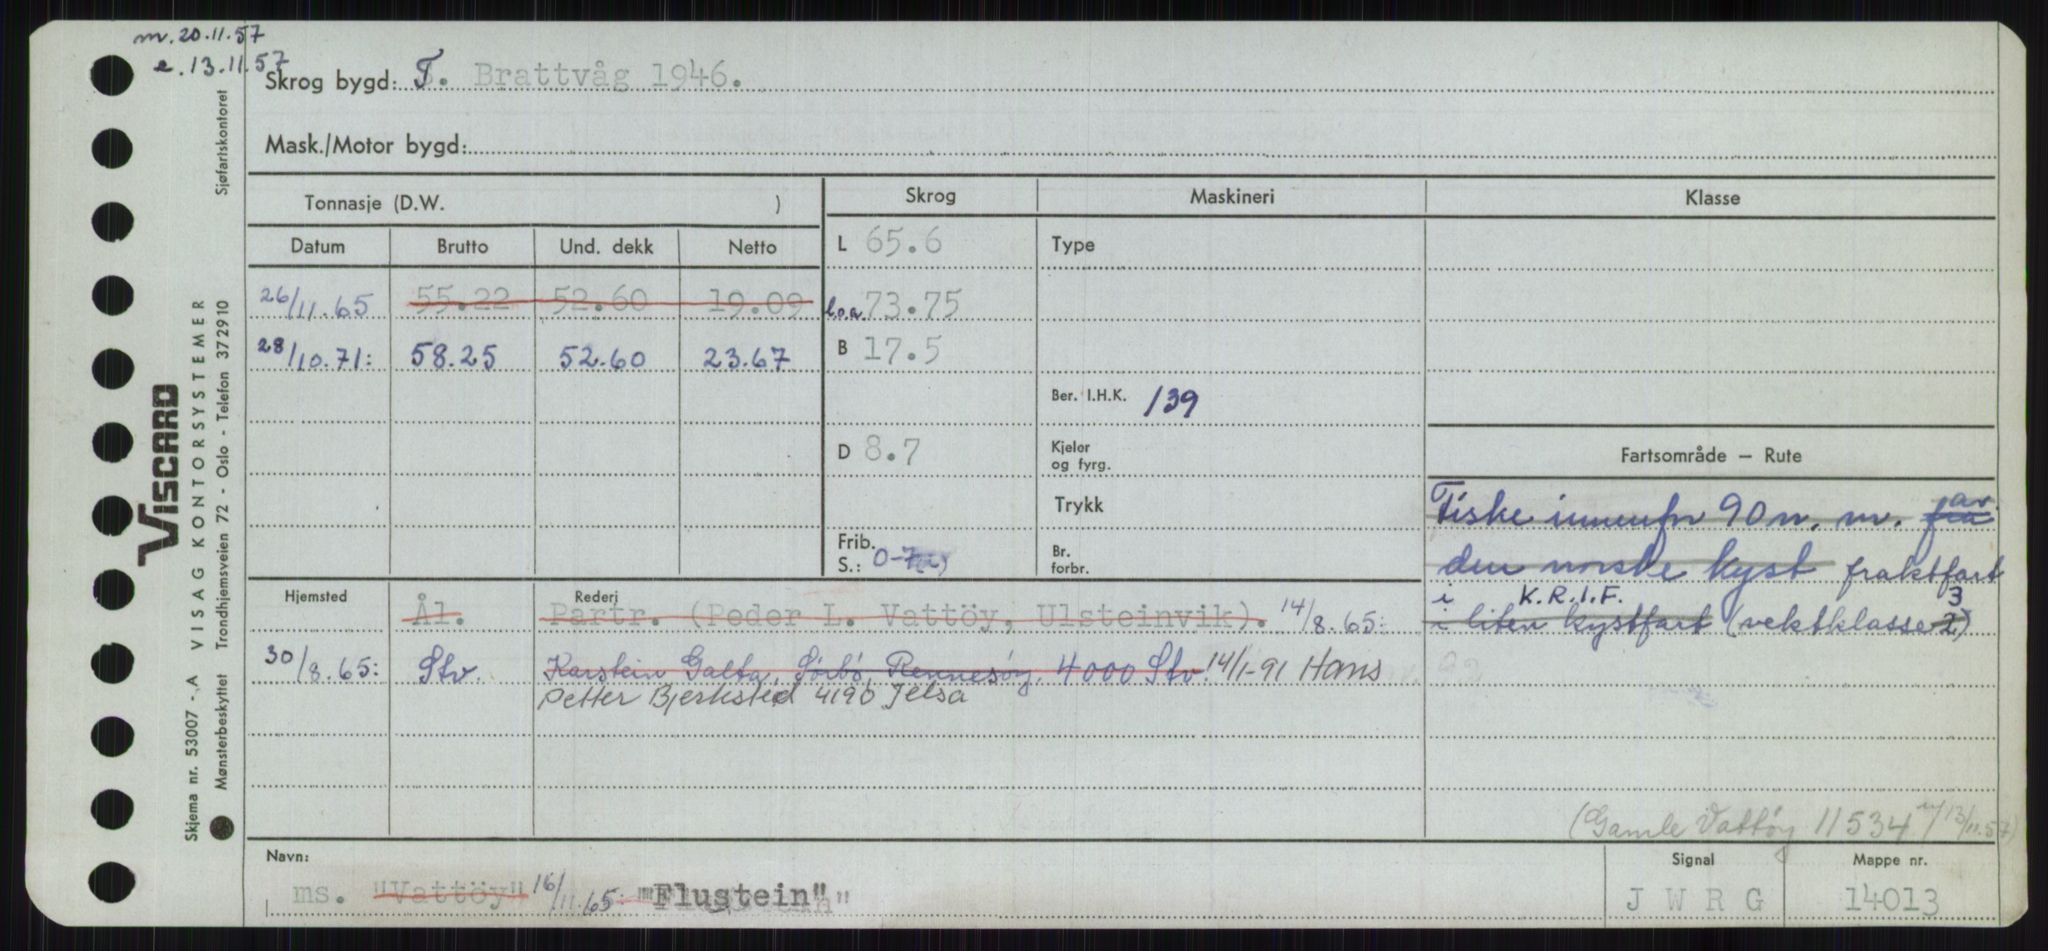 m. 20.11.57
e. 13.11.57
Skrog bygd: T. Brattvåg 1946.
Mask./Motor bygd:
Tonnasje (D.W. )
Skrog
Maskineri
Klasse
Datum Brutto Und. dekk Netto
L 65.6
Type
26/11.65 55.22 52.60 19.09
l.o.a. 73.75
28/10.71: 58.25 52.60 23.67
B 17.5
Ber. I.H.K. 139
D 8.7
Kjeler
og fyrg.
Trykk
Frib.
S.: 0-7
Br.
forbr.
Fartsområde – Rute
Fiske innenfor 90 n. m. fra av
den norske kyst fraktfart
i K.R.I.F. 3
i liten kystfart (vektklasse 2)
Hjemsted Rederj
Ål. Partr. (Peder L. Vattöy, Ulsteinvik). 14/8.65:
30/8.65: Stv. Karstein Galta, Sørbø, Rennesøy, 4000 Stv. 14/1-91 Hans
Petter Bjerksted 4190 Jelsa
(Gamle Vattøy 11534 u/13/11.57)
Navn:
ms. "Vattöy" 16/11.65: "Flustein"
Signal
J W R G
Mappe nr.
14013
VISCARD
Skjema nr. 53007 - A VISAG KONTORSYSTEMER
Mønsterbeskyttet Trondhjemsveien 72 - Oslo - Telefon 372910 Sjøfartskontoret